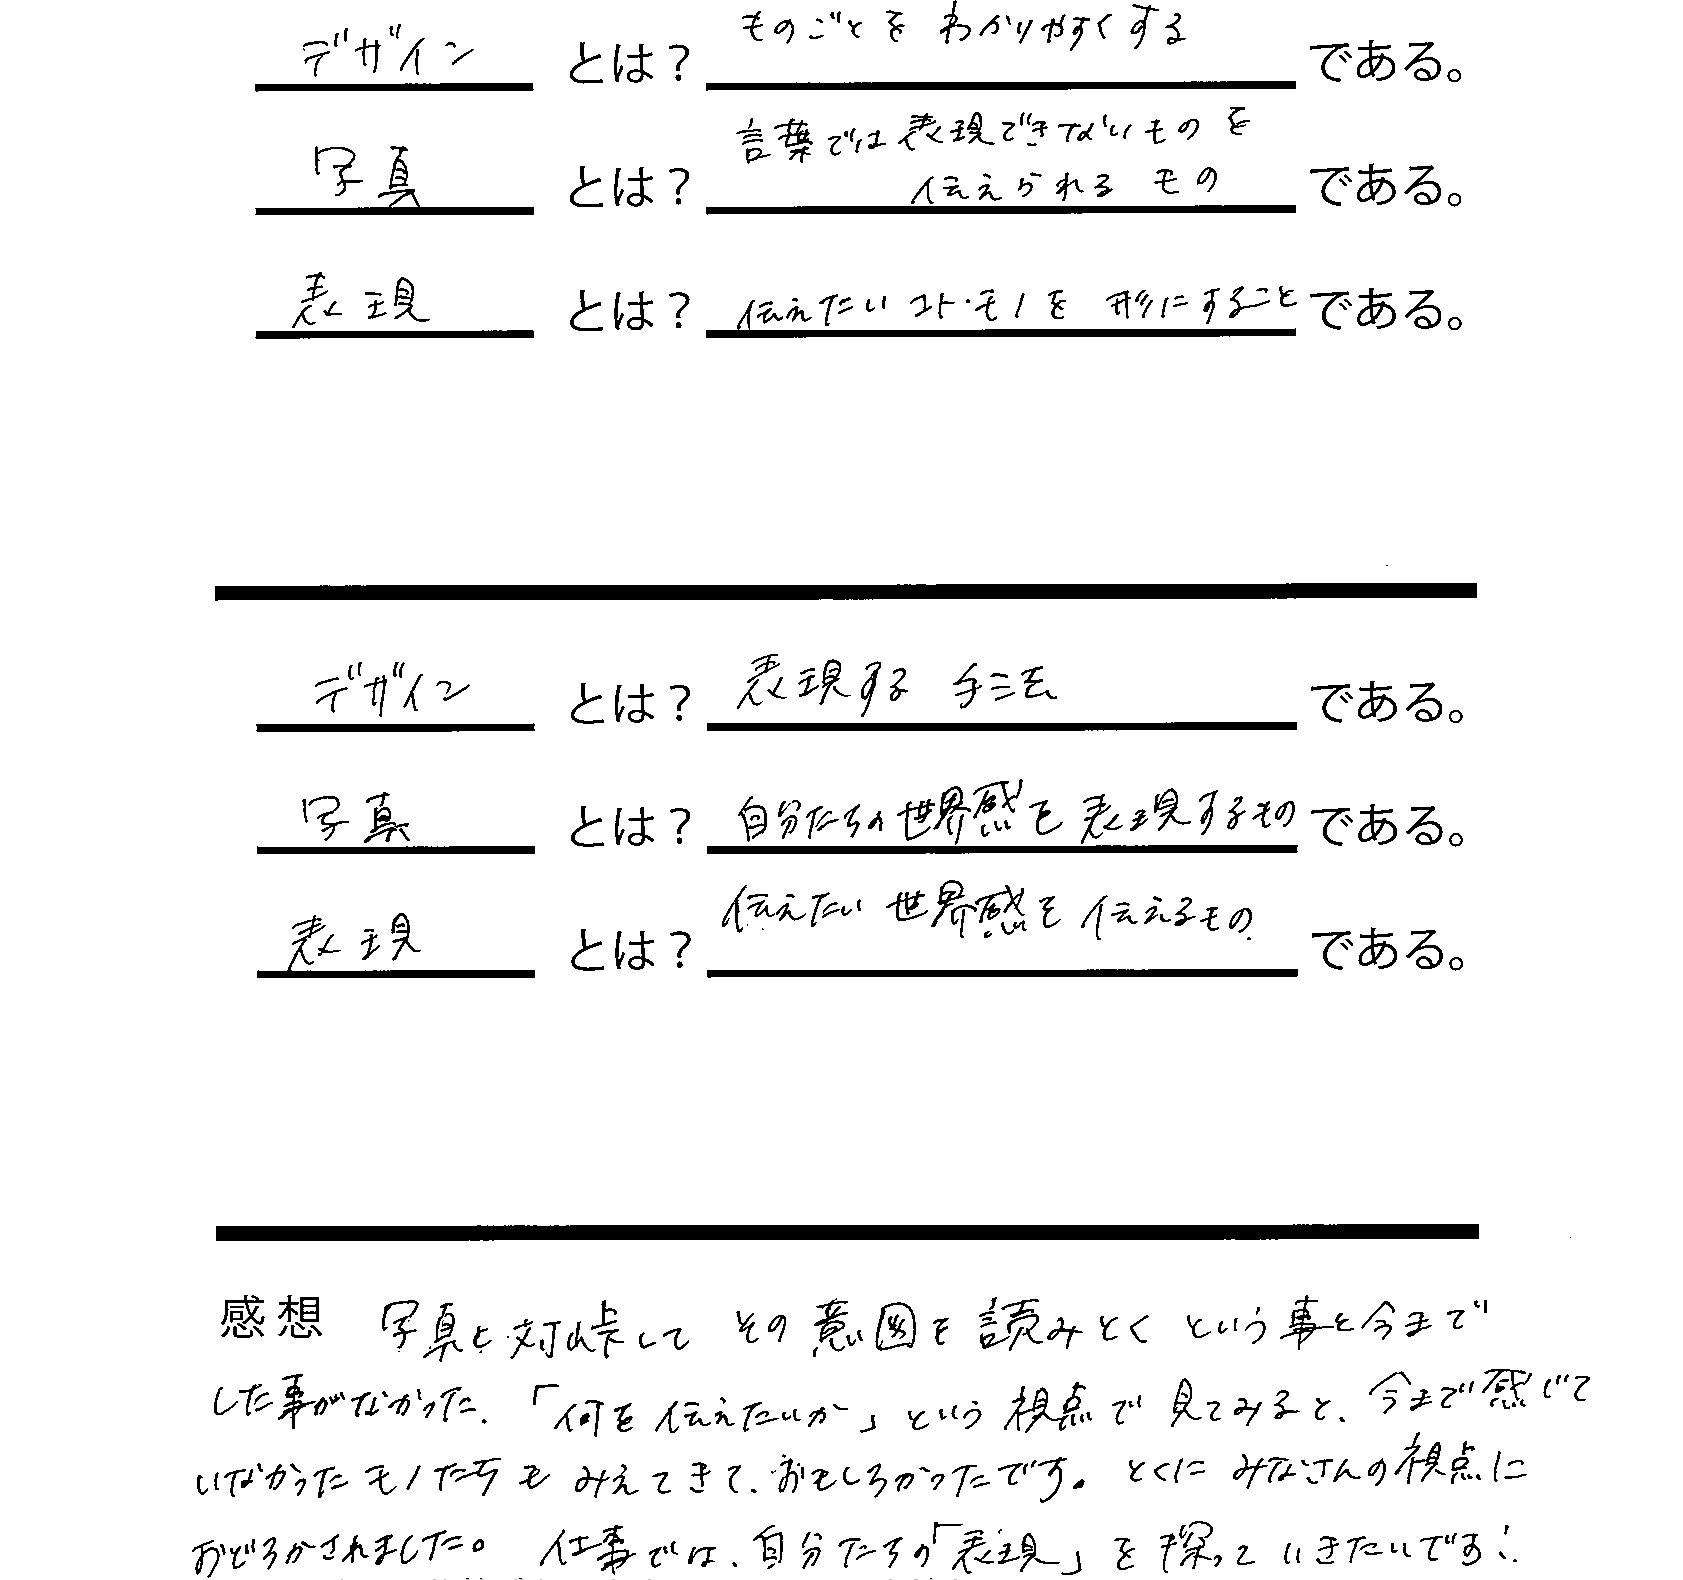 デザイン とは? ものごとを わかりやすくする である。
写真 とは? 言葉では表現できないものを
伝えられる もの である。
表現 とは? 伝えたい コト・モノを 形にすること である。
デザイン とは? 表現する 手法 である。
写真 とは? 自分たちの世界感を 表現するもの である。
表現 とは? 伝えたい 世界感を 伝えるもの である。
感想 写真と対峠して その意図を読みとく という事を今まで
した事がなかった、「何を伝えたいか」という視点で見てみると、今まで感じて
いなかったモノたちも みえてきて、おもしろかったです。とくに みなさんの視点に
おどろかされました。 仕事では、自分たちの「表現」を探って いきたいです!